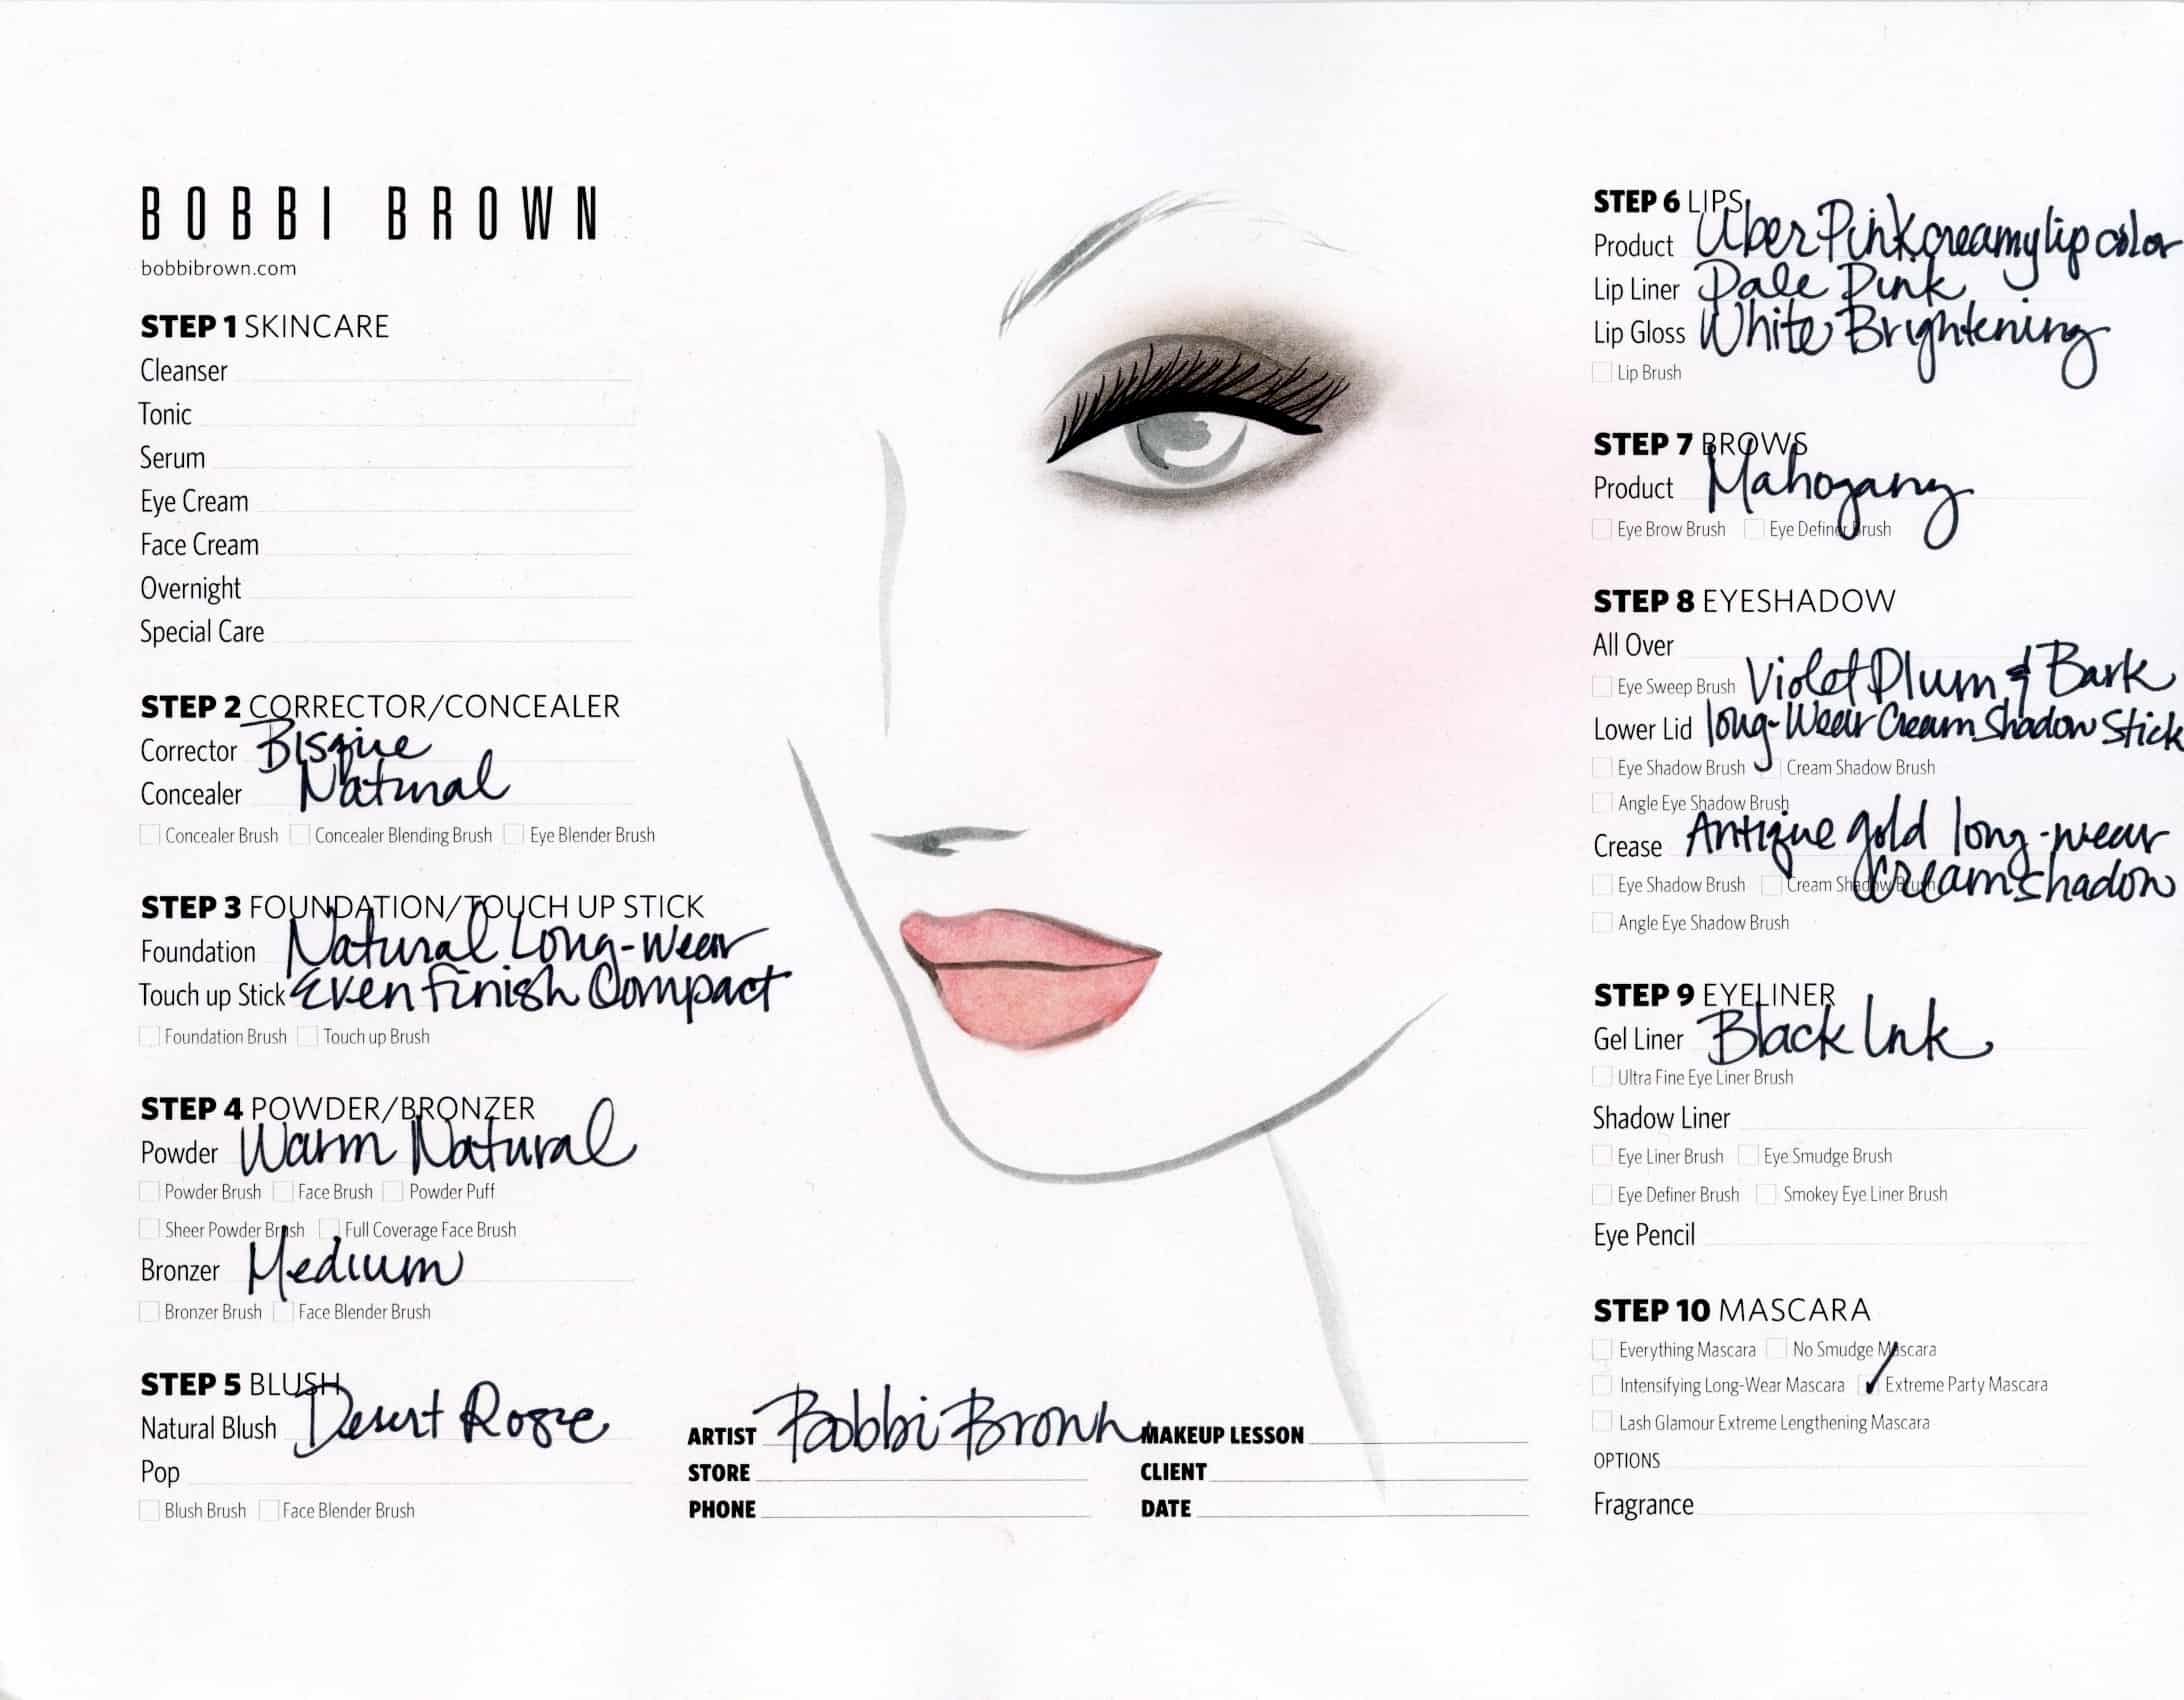 BOBBI BROWN
bobbibrown.com
STEP 1 SKINCARE
Cleanser
Tonic
Serum
Eye Cream
Face Cream
Overnight
Special Care
STEP 2 CORRECTOR/CONCEALER
Corrector Bisque
Concealer Natural
Concealer Brush Concealer Blending Brush Eye Blender Brush
STEP 3 FOUNDATION/TOUCH UP STICK
Foundation Natural Long-Wear
Touch up Stick Even Finish Compact
Foundation Brush Touch up Brush
STEP 4 POWDER/BRONZER
Powder Warm Natural
Powder Brush Face Brush Powder Puff
Sheer Powder Brush Full Coverage Face Brush
Bronzer Medium
Bronzer Brush Face Blender Brush
STEP 5 BLUSH
Natural Blush Desert Rose
Pop
Blush Brush Face Blender Brush
ARTIST Bobbi Brown
STORE
PHONE
MAKEUP LESSON
CLIENT
DATE
STEP 6 LIPS
Product Uber Pink creamy lip color
Lip Liner Pale Pink
Lip Gloss White Brightening
Lip Brush
STEP 7 BROWS
Product Mahogany
Eye Brow Brush Eye Definer Brush
STEP 8 EYESHADOW
All Over
Eye Sweep Brush Violet Plum & Bark
Lower Lid long-Wear Cream Shadow Stick
Eye Shadow Brush Cream Shadow Brush
Angle Eye Shadow Brush
Crease Antique gold long-wear
Eye Shadow Brush Cream Shadow Brush Cream shadow
Angle Eye Shadow Brush
STEP 9 EYELINER
Gel Liner Black Ink
Ultra Fine Eye Liner Brush
Shadow Liner
Eye Liner Brush Eye Smudge Brush
Eye Definer Brush Smokey Eye Liner Brush
Eye Pencil
STEP 10 MASCARA
Everything Mascara No Smudge Mascara
Intensifying Long-Wear Mascara Extreme Party Mascara
Lash Glamour Extreme Lengthening Mascara
OPTIONS
Fragrance